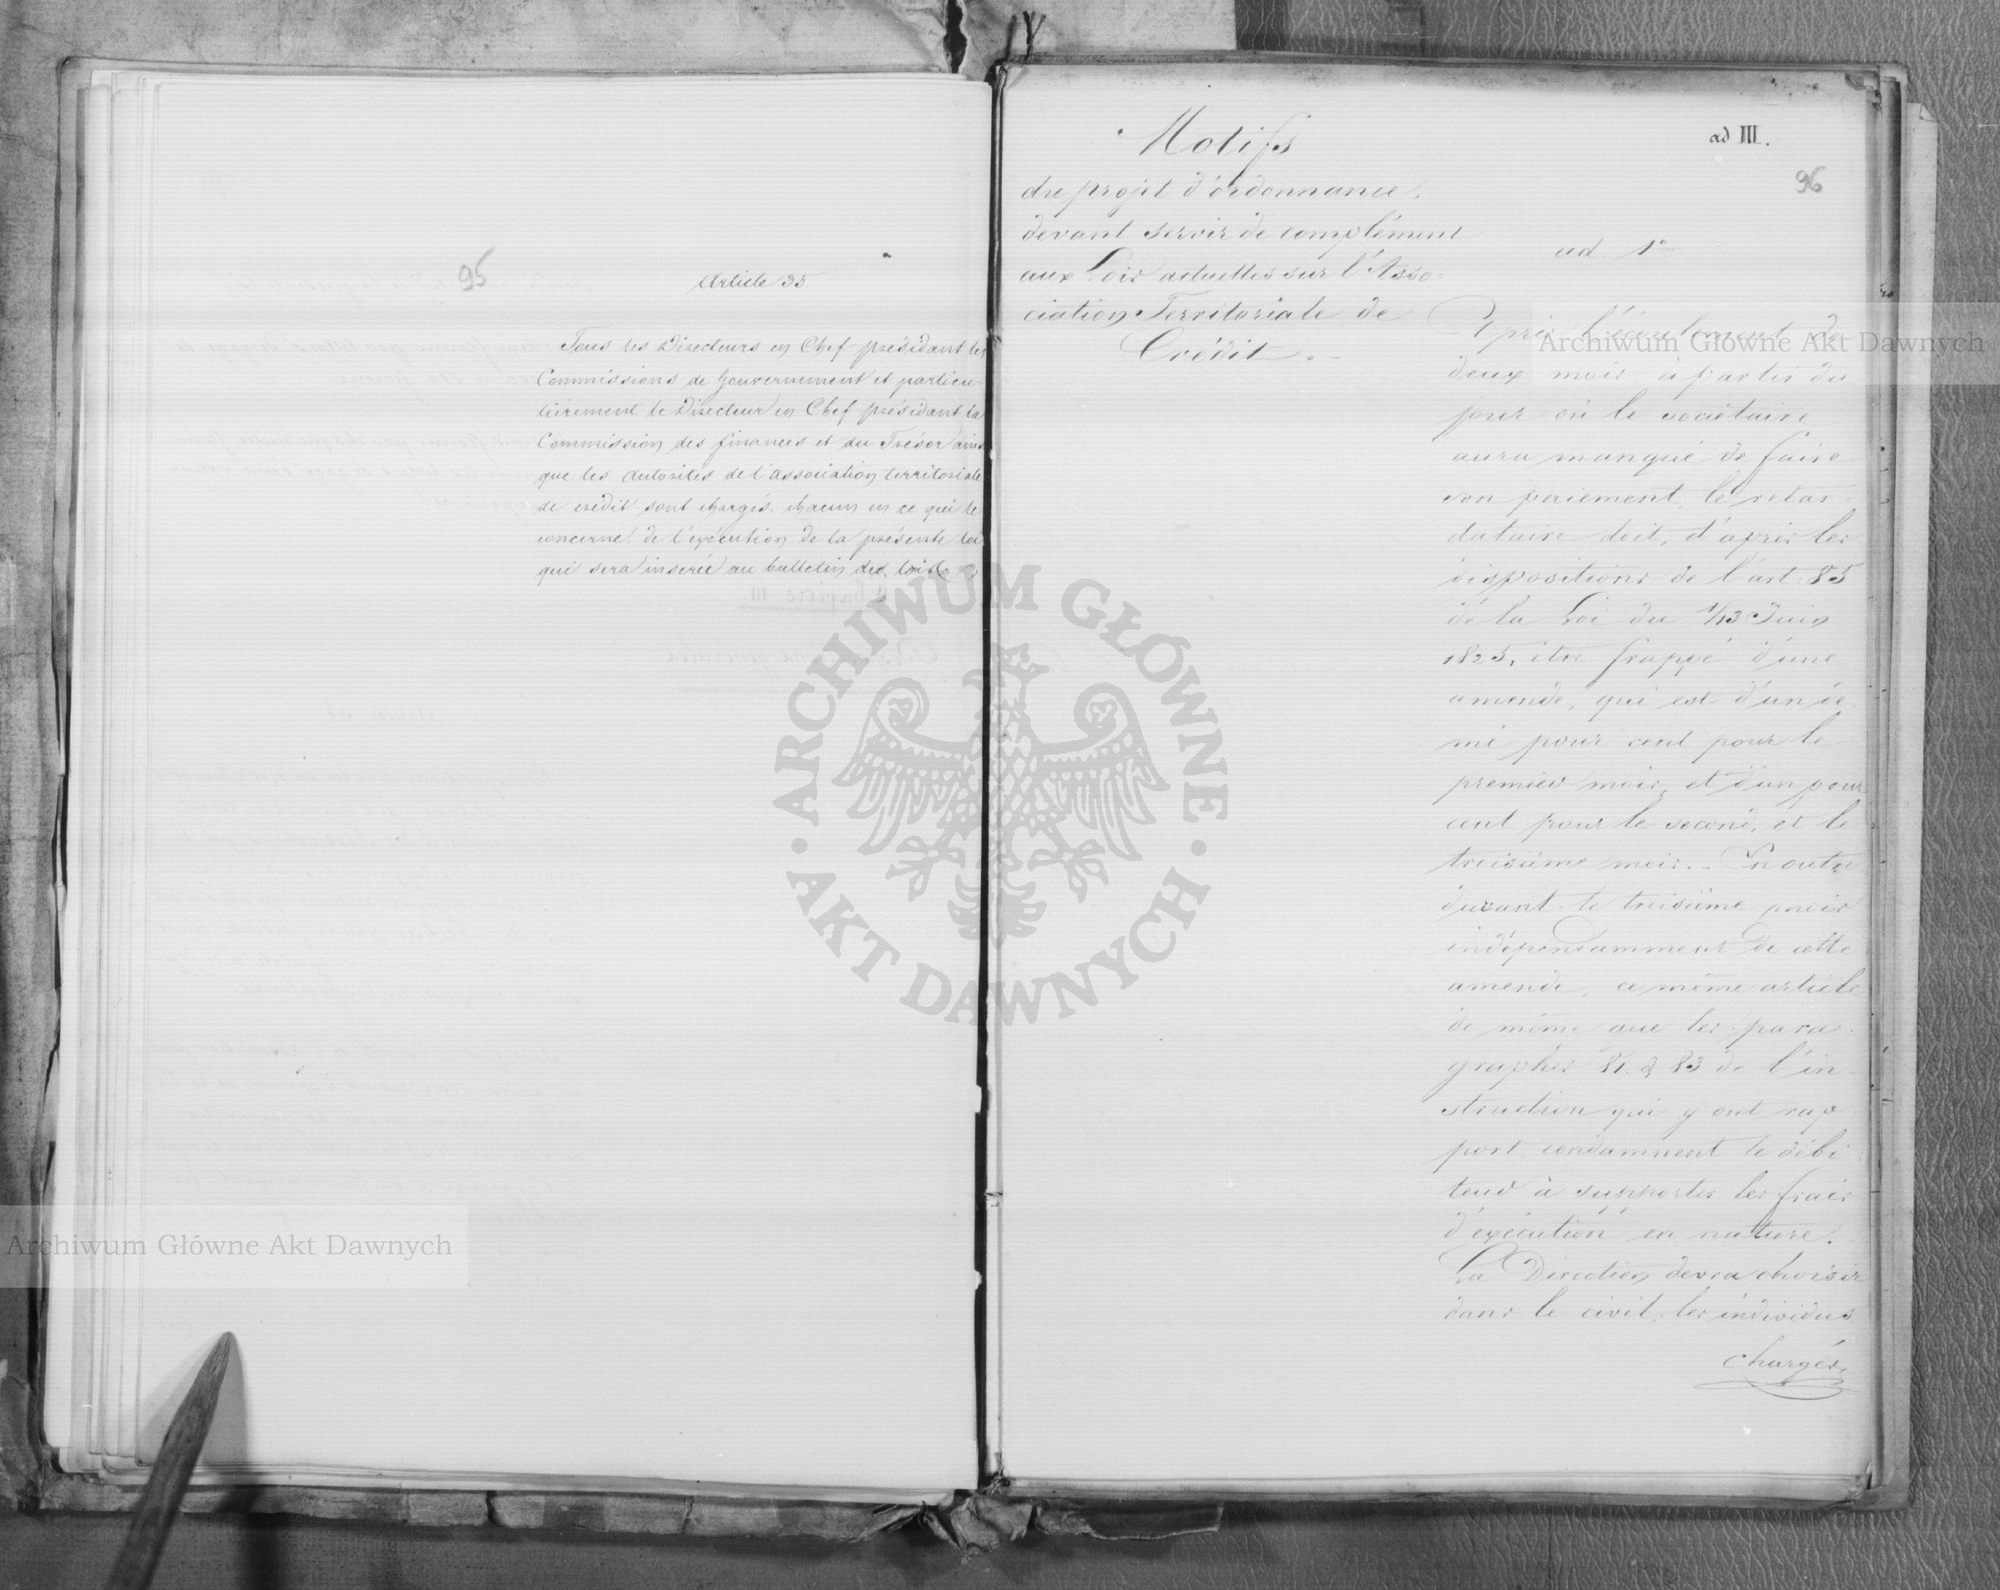 95
Article 35
Tous les Directeurs en Chef présidant les
Commissions de Gouvernement et particu-
lièrement le Directeur en Chef présidant la
Commission des finances et du Trésor ainsi
que les autorités de l'association territoriale
de crédit sont chargés, chacun en ce qui le
concerne, de l'exécution de la présente loi
qui sera insérée au bulletin des lois.
ad III.
96
Motifs
du projet d'ordonnance,
devant servir de complément
aux Lois actuelles sur l'Asso-
ciation Territoriale de
Crédit.
ad 1°
Après l'écoulement de
deux mois à partir du
jour où le sociétaire
aura manqué de faire
son paiement, le retar-
dataire doit, d'après les
dispositions de l'art. 85
de la Loi du 1/13 Juin
1825, être frappé d'une
amende, qui est d'un de
mi pour cent pour le
premier mois, et d'un pour
cent pour le second, et le
troisième mois. – En outre
durant le troisième mois
indépendamment de cette
amende, ce même article
de même que les para-
graphes 81. & 83 de l'in
struction qui y ont rap
port condamnent le débi
teur à supporter les frais
d'exécution en nature.
La Direction devra choisir
dans le civil, les individus
chargés
Archiwum Główne Akt Dawnych
Archiwum Główne Akt Dawnych
ARCHIWUM GŁÓWNE · AKT DAWNYCH ·